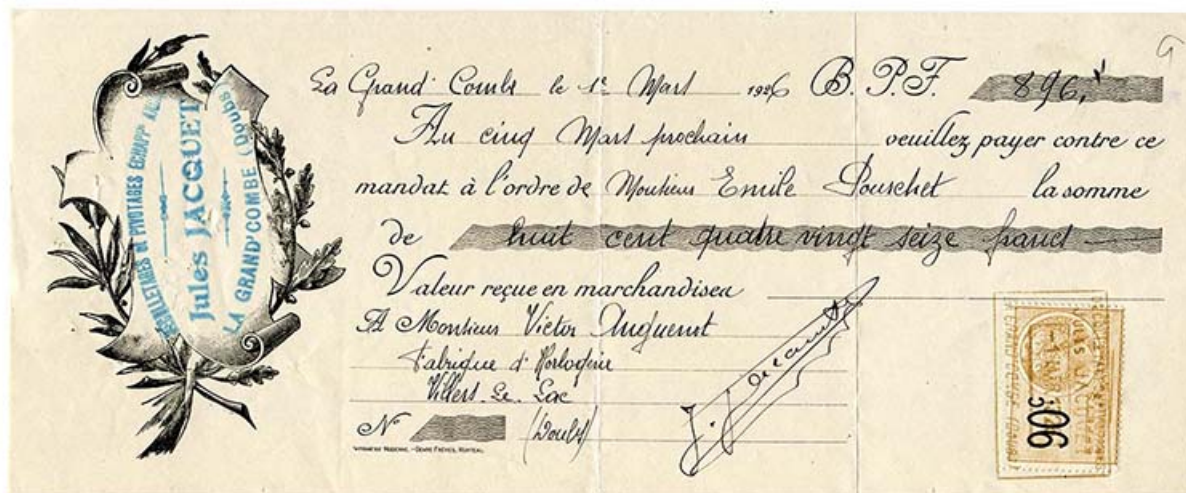 PIVOTAGES ÉCHAPP
Jules JACQUET
LA GRAND'COMBE (Doubs)
La Grand' Combe le 1er Mars 1926 B. P. F. 896,
Au cinq Mars prochain veuillez payer contre ce
mandat à l'ordre de Monsieur Emile Pouschet la somme
de huit cent quatre vingt seize francs
Valeur reçue en marchandises
A Monsieur Victor Anguenot
Fabrique d'Horlogerie
Villers-Le-Lac
No (Doubs)
MODERNE. FRÈRES,
J. Jacquet
06